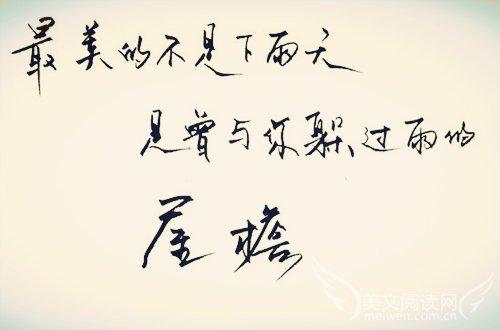 最美的不是下雨天
是曾与你躲过雨的
屋檐
美文阅读网
meiwen.com.cn